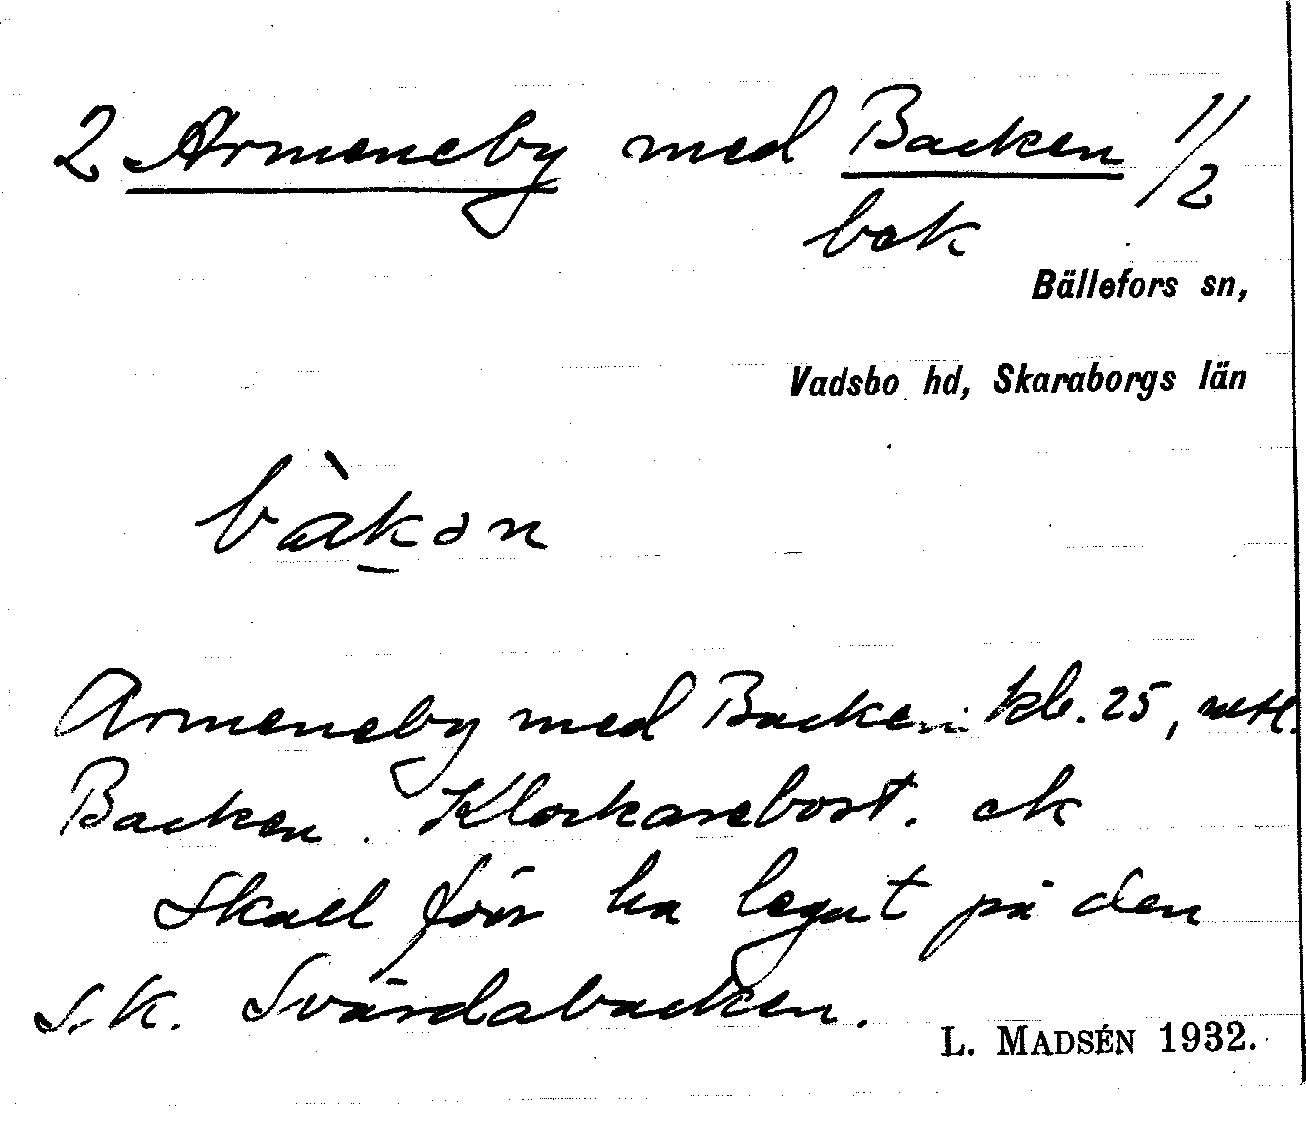 2 Armeneby med Backen 1/2
bak
Bällefors sn,
Vadsbo hd, Skaraborgs län
bàkən
Armeneby med Backen kb. 25, uttl.
Backen. Klockarebost. ek
Skall förr ha legat på den
s.k. Svärdabacken.
L. MADSÉN 1932.